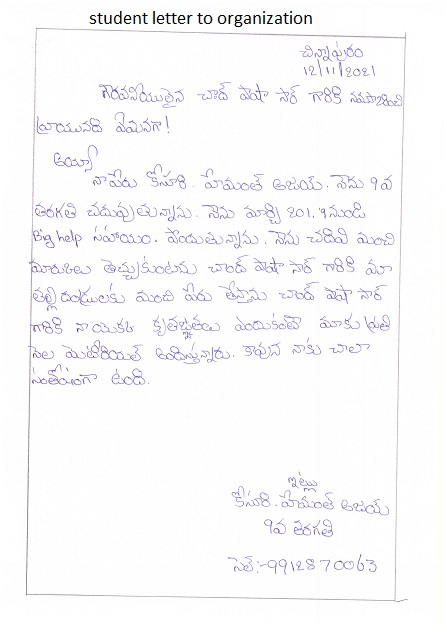 student letter to organization
చిన్నాపురం
12/11/2021
గౌరవనీయులైన చాంద్ పాషా సార్ గారికి నమస్కరించి
వ్రాయునది ఏమనగా!
అయ్యా
నా పేరు కోసూరి. హేమంత్ అజయ్. నేను 9వ
తరగతి చదువుతున్నాను. నేను మార్చి 201.9 నుండి
Big help సహాయం. పొందుతున్నాను. నేను చదివి మంచి
మార్కులు తెచ్చుకుంటాను చాంద్ పాషా సార్ గారికి మా
తల్లిదండ్రులకు మంచి పేరు తెస్తాను చాంద్ పాషా సార్
గారికి నా యొక్క కృతజ్ఞతలు ఎందుకంటే మాకు ప్రతి
నెల మెటీరియల్ అందిస్తున్నారు. కావున నాకు చాలా
సంతోషంగా ఉంది.
ఇట్లు
కోసూరి. హేమంత్ అజయ్
9వ తరగతి
సెల్:-9912870063